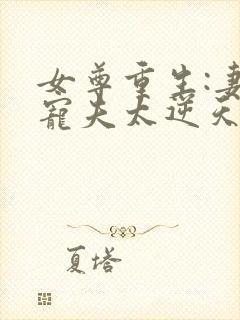 女尊重生:妻
寵夫太逆天
夏塔